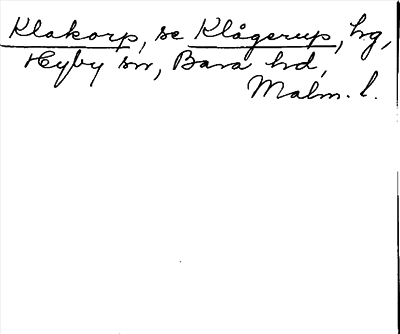 Klakorp, se Klågerup, hg,
Hyby sn, Bara hd,
Malm. l.